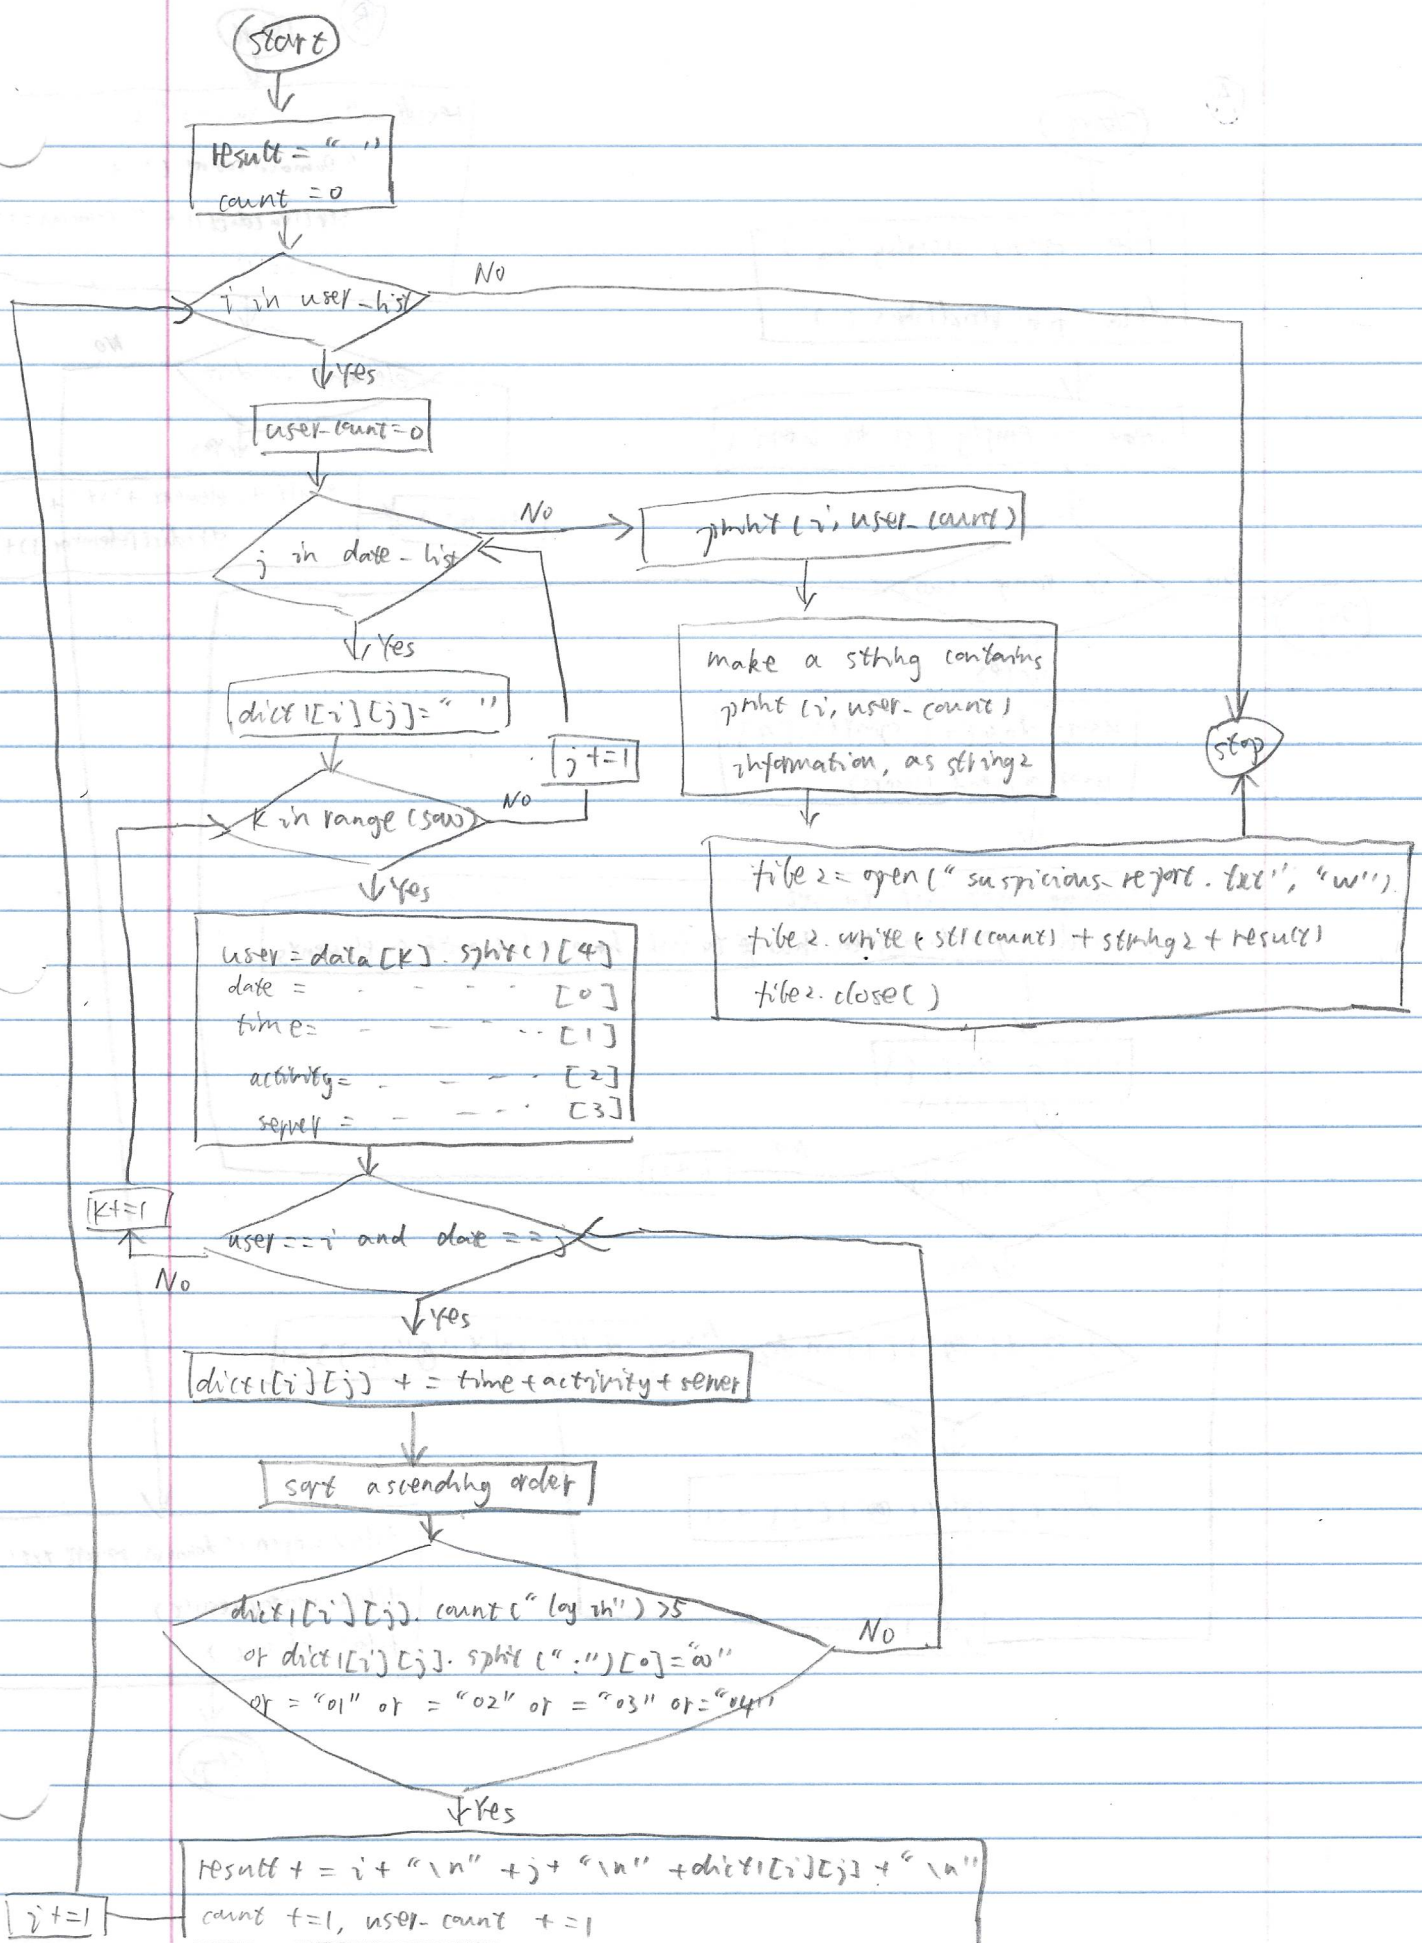 start
result = " "
count = 0
i in user_list
No
Yes
user_count=0
j in date_list
No
print (i, user_count)
Yes
make a string contains
print (i, user_count)
information, as string2
dict1[i][j]=" "
j+=1
stop
k in range (500)
No
Yes
file2 = open("suspicious_report.txt", "w")
file2.write(str(count) + string2 + result)
file2.close()
user = data[k].split()[4]
date = - - - - [0]
time= - - - -- [1]
activity= - - - - [2]
server = - - -- [3]
k+=1
user==i and date == j
No
Yes
dict1[i][j] += time+activity+server
sort ascending order
dict1[i][j].count("log in") >5
or dict1[i][j].split(":")[0]="00"
or = "01" or = "02" or = "03" or="04"
No
Yes
result += i+"\n"+j+"\n"+dict1[i][j]+"\n"
count +=1, user_count +=1
i+=1